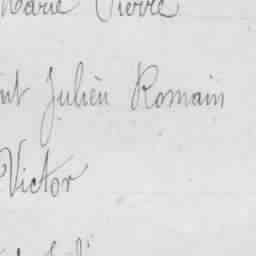 Marie Pierre
Julien Romain
Victor